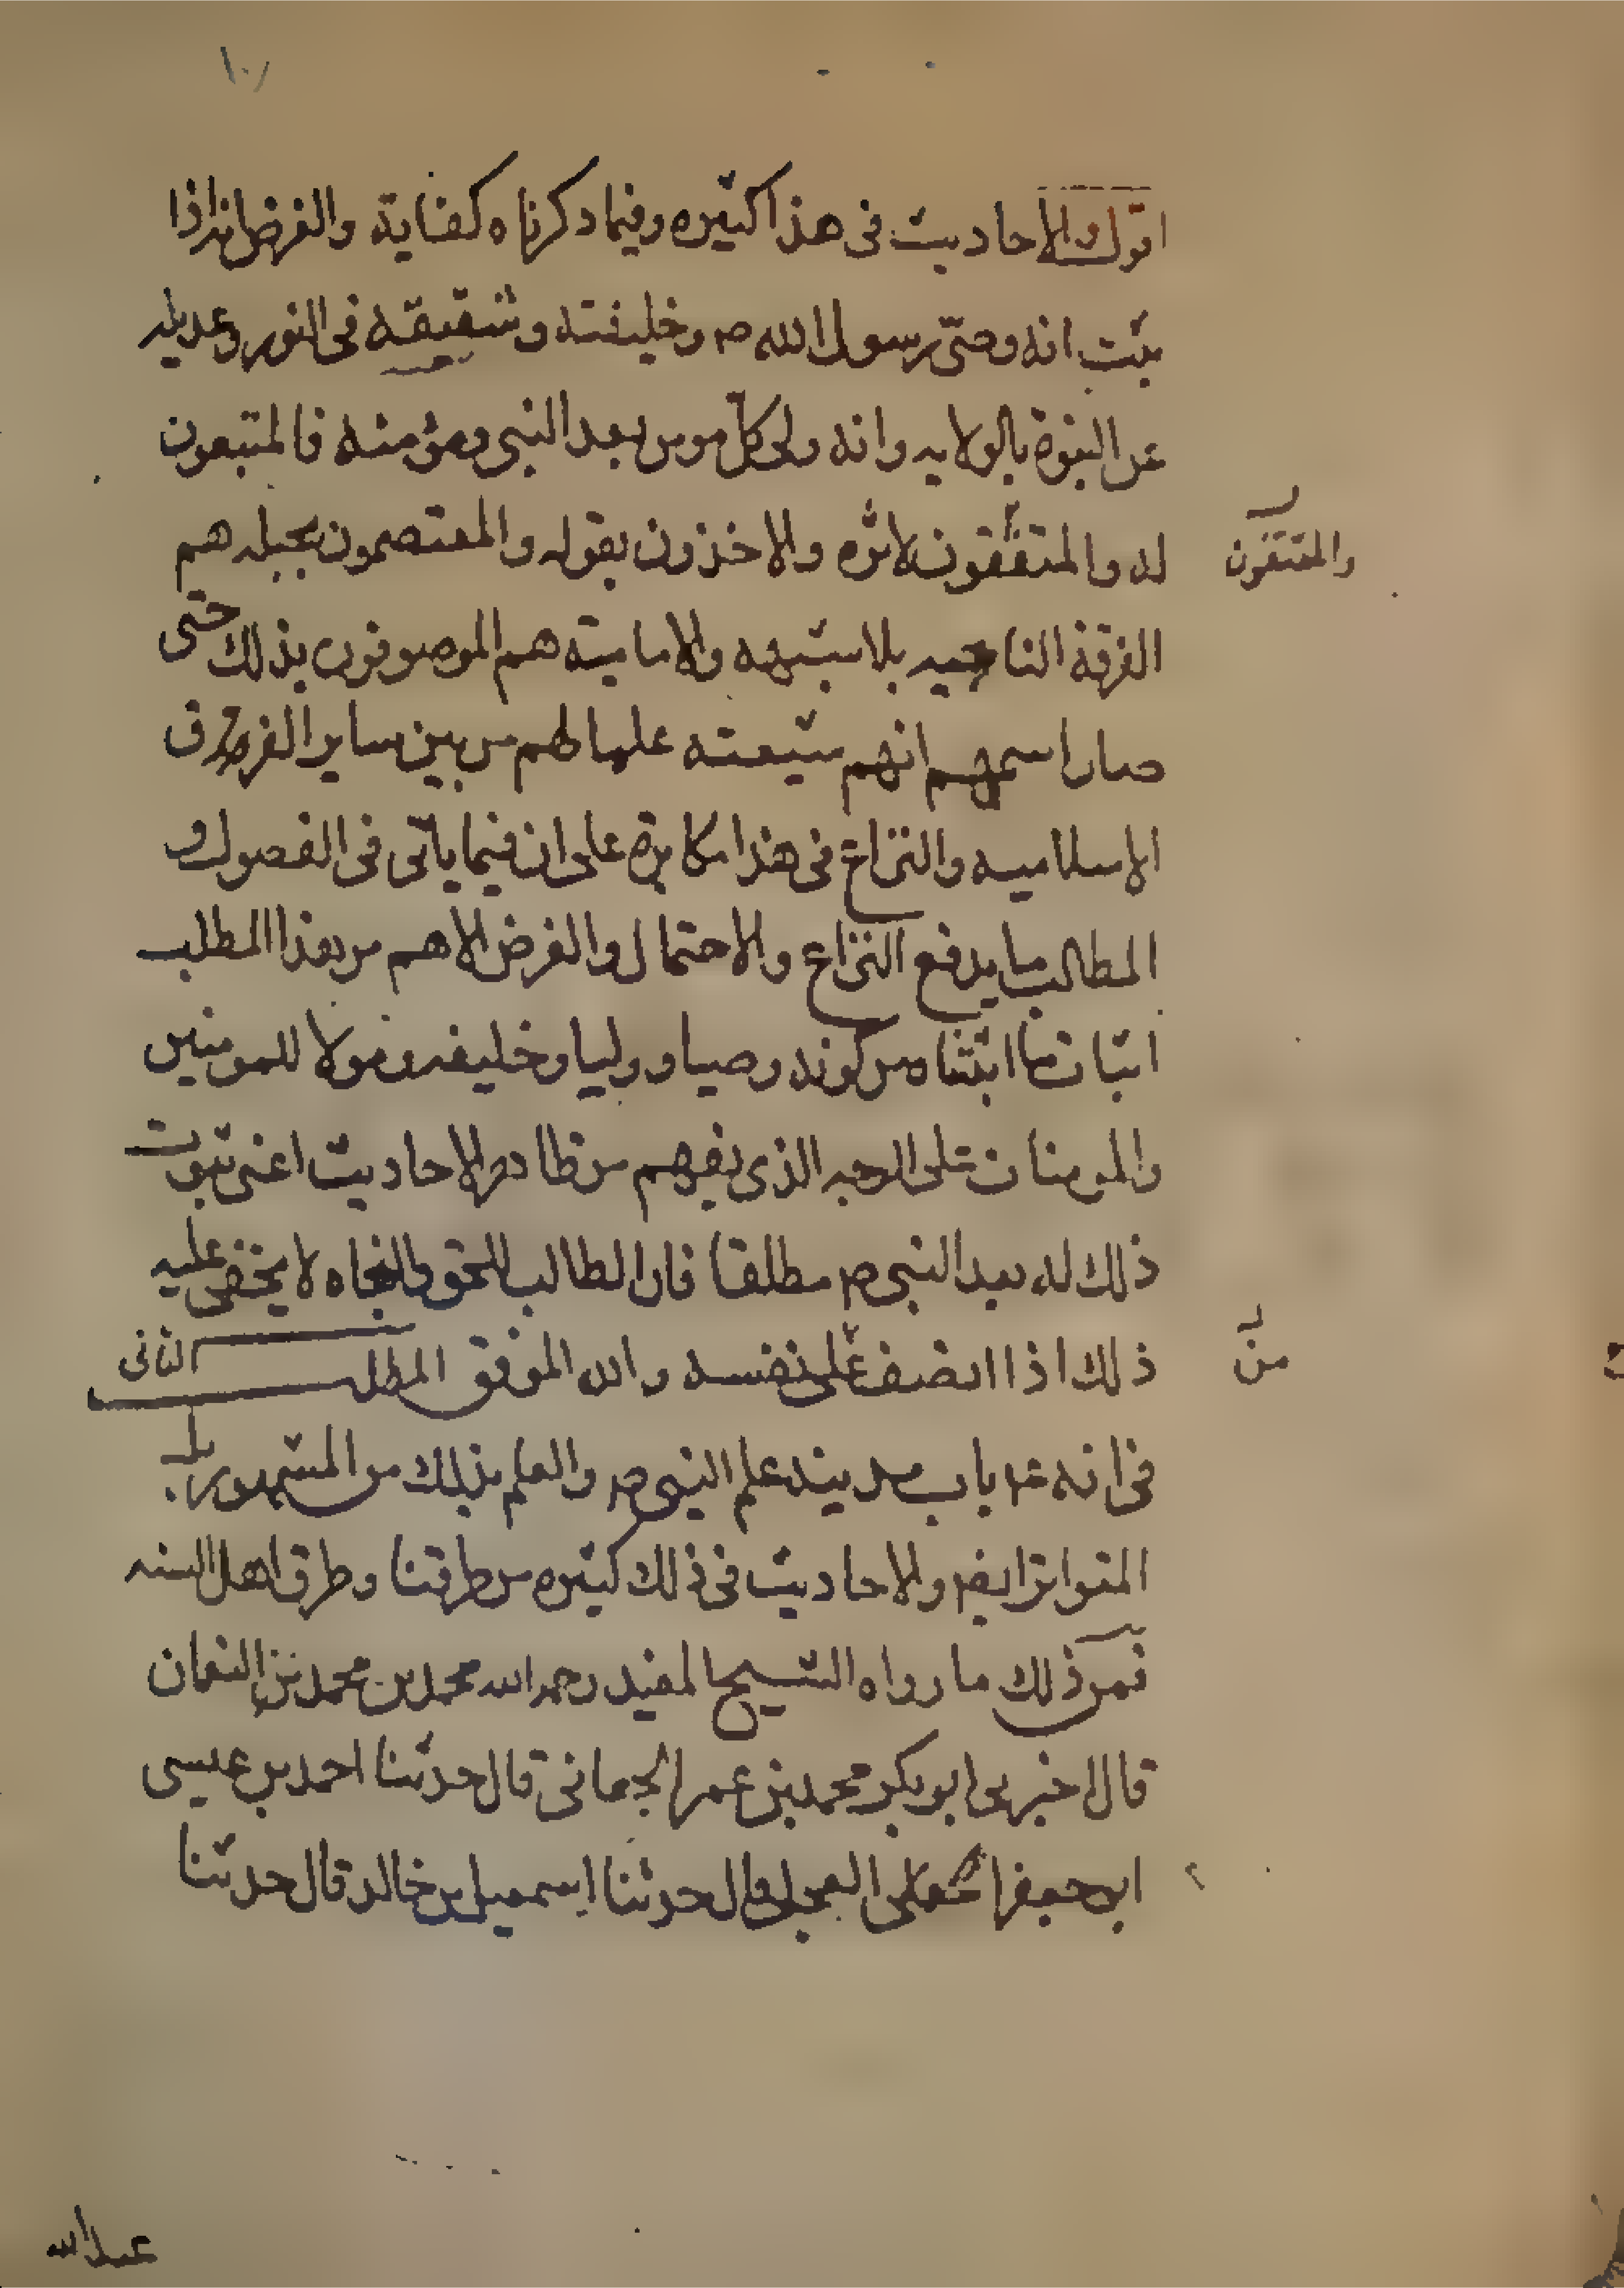 اقول والاحاديث فى هذا كثيره وفيما ذكرناه كفاية والغرض انه اذا
ثبت انه وصىّ رسول الله ص وخليفته وشقيقه فى النور وعديله
عن النبوة بالولايه وانه ولى كلّ مومن بعد النبى ومؤمنه فالمتبعون
له والمتفقون لاثره والاخذون بقوله والمعتصمون بحبله هم
والمقتفون
الفرقة الناجيه بلا شبهه والاماميته هم الموصوفون بذلك حتى
صار اسمهم انهم شيعته علما لهم من بين ساير الفرق
الاسلاميه والنزاع فى هذا مكابرة على ان فيما ياتى فى الفصول و
المطالب ما يدفع النزاع والاحتمال والغرض الاهم من هذا المطلب
اثبات ما اثبتناه من كونه وصيا ووليا وخليفه ومولا للمومنين
والمومنات على الوجه الذى يفهم من ظاهر الاحاديث اعنى ثبوت
ذلك له بعد النبى ص مطلقا فان الطالب للحق والنجاه لا يخفى عليه
ذلك اذا انصف على نفسه والله الموفق المطلب الثانى
من
فى انه ع باب مدينه علم النبى ص والعلم بذلك من المشهور بل
المتواتر ايضا والاحاديث فى ذلك كثيره من طرقنا وطرق اهل السنه
فمن ذلك ما رواه الشيخ المفيد رحمه الله محمد بن محمد بن النعمان
قال اخبرنى ابو بكر محمد بن عمر الجعابى قال حدثنا احمد بن عيسى
ابو جعفر العجلى قال حدثنا اسمعيل بن خالد قال حدثنا
عبد الله